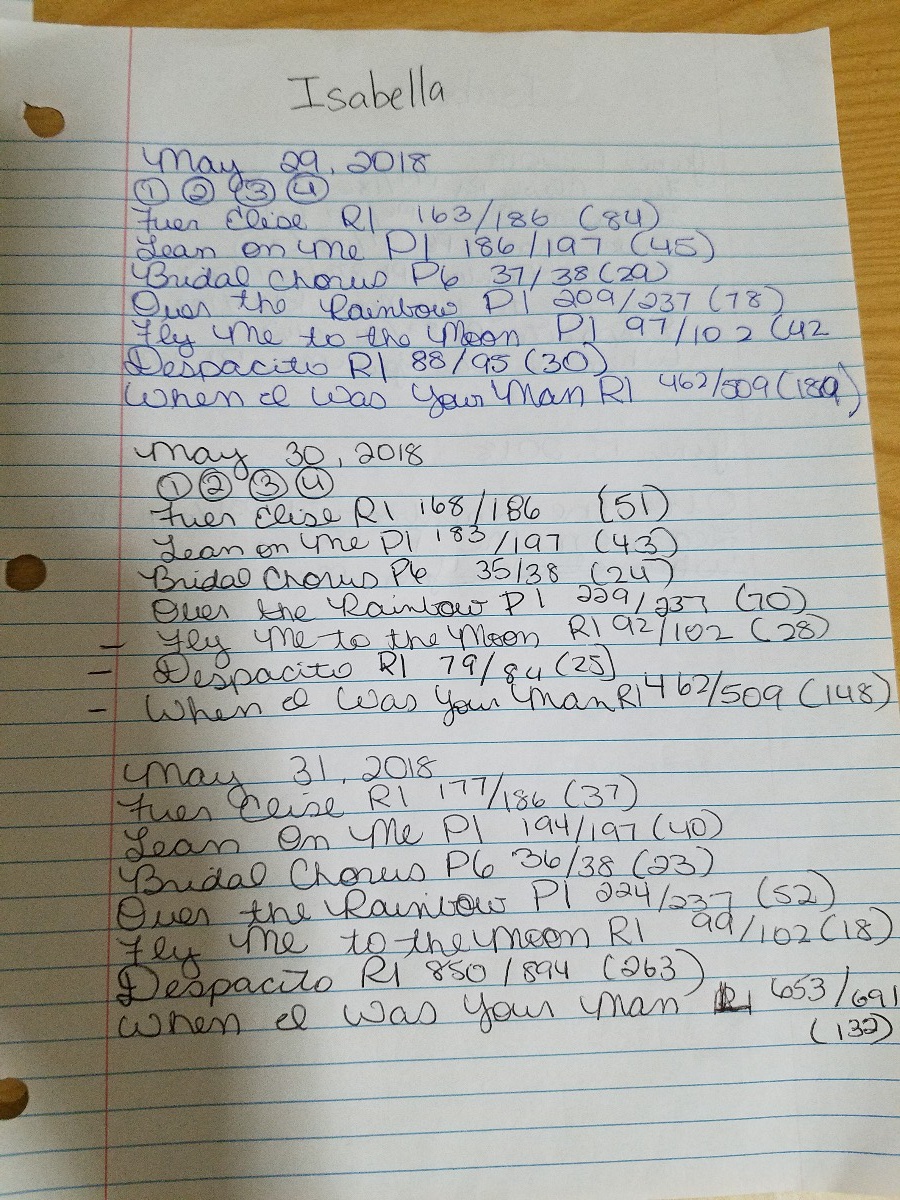 Isabella
May 29, 2018
① ② ③ ④
Fuer Elise R1 163/186 (84)
Lean on Me P1 186/197 (45)
Bridal Chorus P6 37/38 (29)
Over the Rainbow P1 209/237 (78)
Fly Me to the Moon P1 97/102 (42
Despacito R1 88/95 (30)
When I Was Your Man R1 462/509 (189)
May 30, 2018
① ② ③ ④
Fuer Elise R1 168/186 (51)
Lean on Me P1 183/197 (43)
Bridal Chorus P6 35/38 (24)
Over the Rainbow P1 229/237 (70)
- Fly Me to the Moon R1 92/102 (28)
- Despacito R1 79/84 (25)
- When I Was Your Man R1 462/509 (148)
May 31, 2018
Fuer Elise R1 177/186 (37)
Lean On Me P1 194/197 (40)
Bridal Chorus P6 36/38 (23)
Over the Rainbow P1 224/237 (52)
Fly Me to the Moon R1 99/102 (18)
Despacito R1 850/894 (263)
When I Was Your Man R1 653/691
(132)